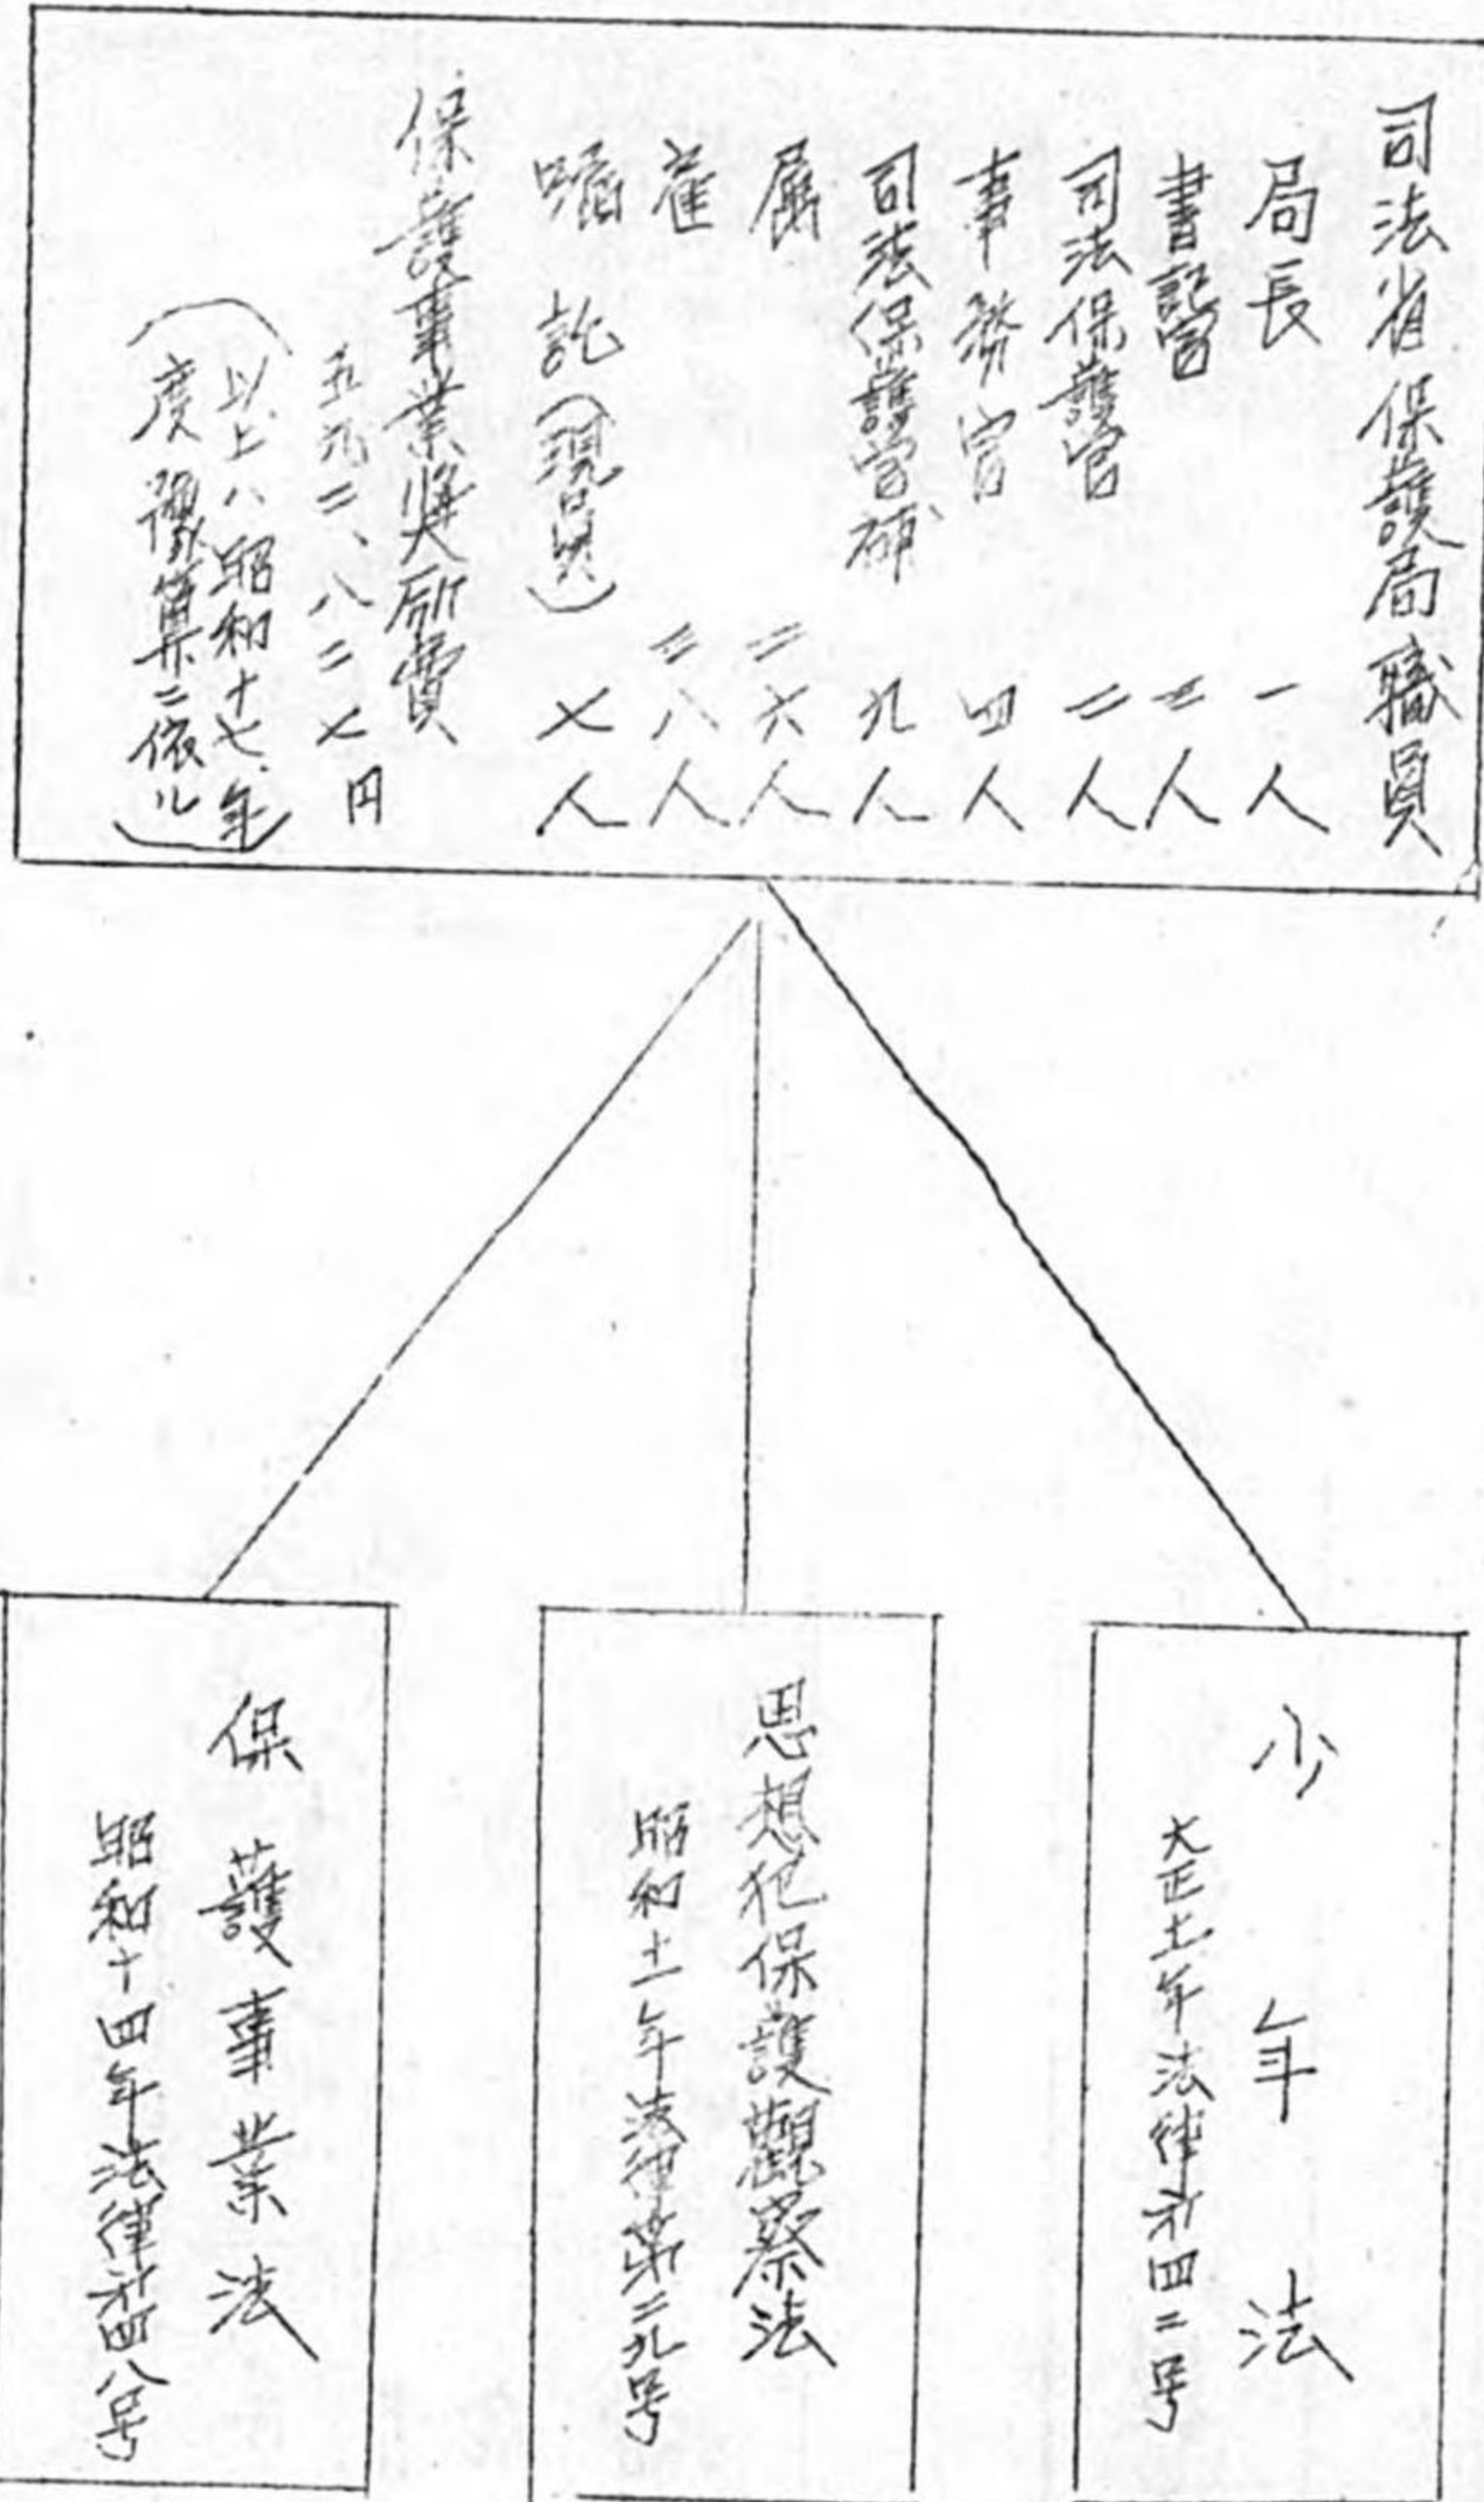 司法省保護局職員
局長 一人
書記官 三人
司法保護官 二人
事務官 四人
司法保護官補 九人
属 二六人
雇 三八人
嘱託(現員) 七人
保護事業奨励費
五九二、八二七円
(以上ハ昭和十七年
度豫算ニ依ル)
少年法
大正十一年法律才四二号
思想犯保護觀察法
昭和十一年法律第二九号
保護事業法
昭和十四年法律才四八号